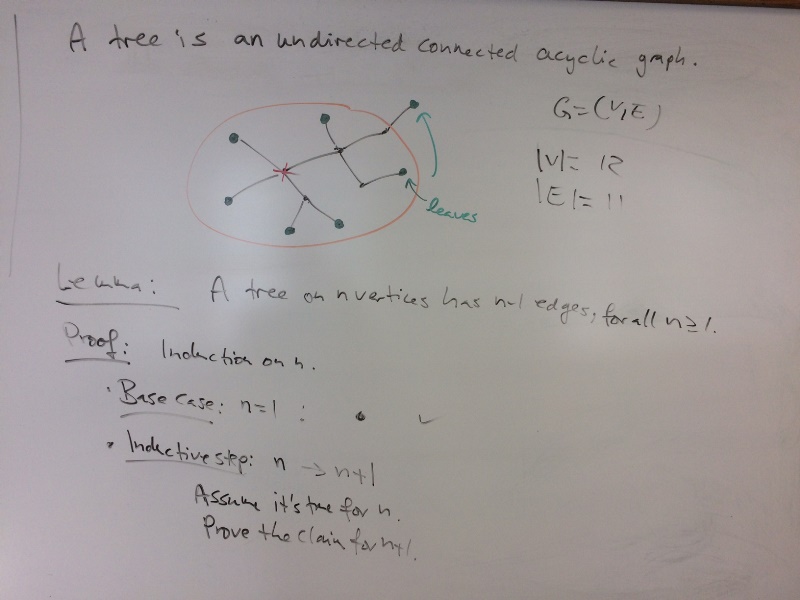 A tree is an undirected connected acyclic graph.
G=(V,E)
|V|= 12
|E|= 11
leaves
Lemma: A tree on n vertices has n-1 edges, for all n≥1.
Proof: Induction on n.
• Base case: n=1 : • ✓
• Inductive step: n -> n+1
Assume it's true for n.
Prove the claim for n+1.